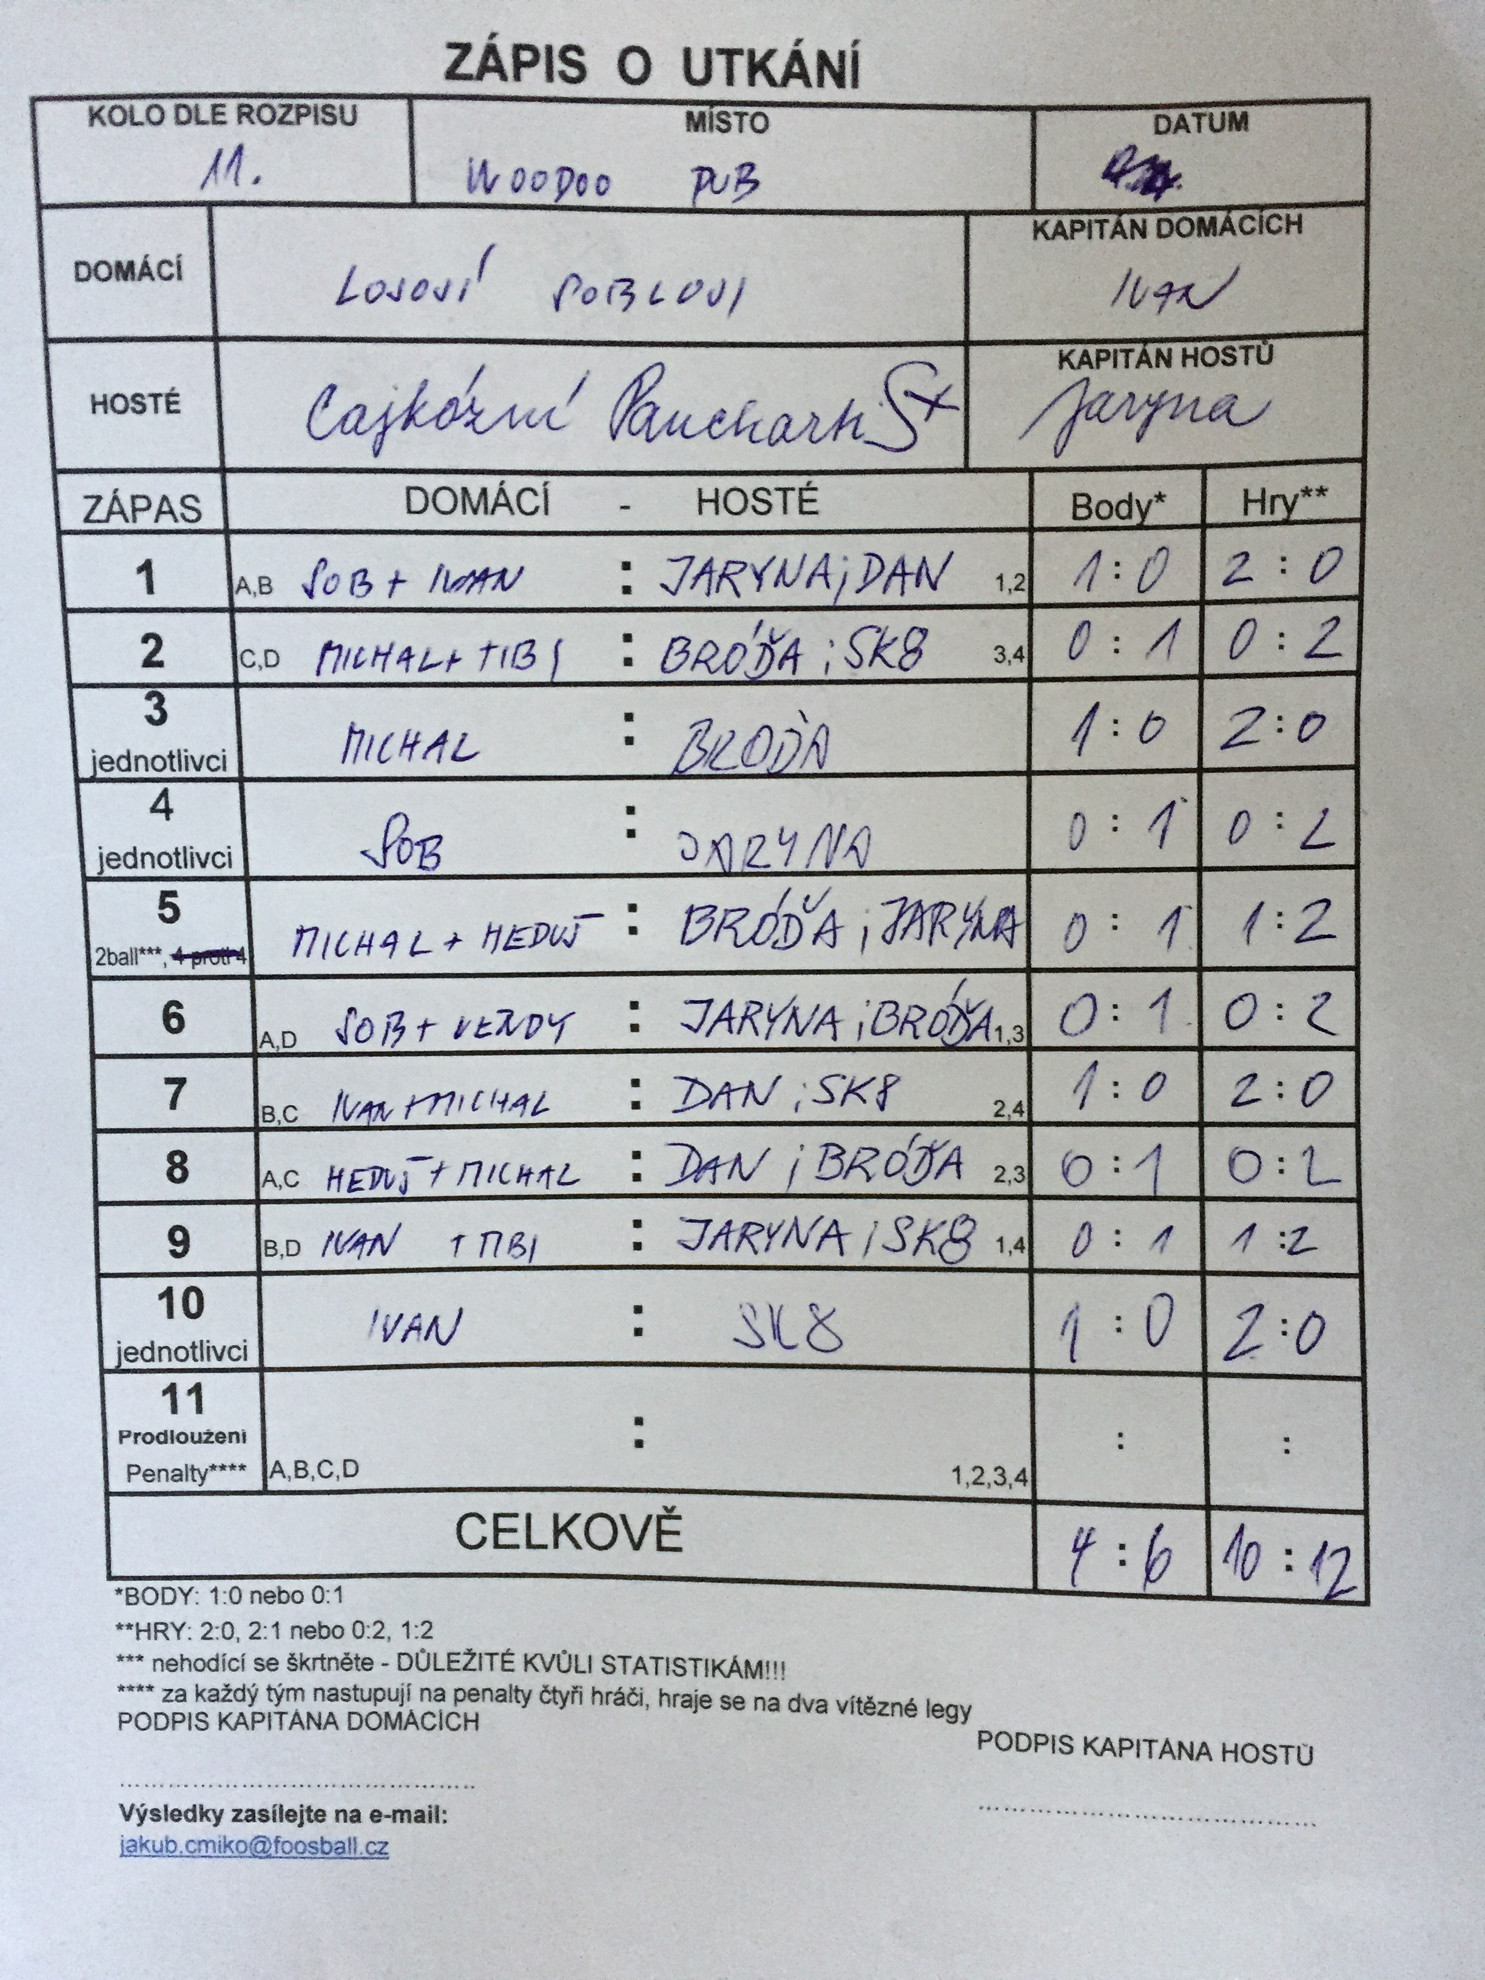 ZÁPIS O UTKÁNÍ
KOLO DLE ROZPISU MÍSTO DATUM
11. WOODOO PUB
DOMÁCÍ KAPITÁN DOMÁCÍCH
IVAN
HOSTÉ KAPITÁN HOSTŮ
Jaryna
ZÁPAS DOMÁCÍ - HOSTÉ Body* Hry**
1 A,B SOB + IVAN : JARYNA; DAN 1,2 1:0 2:0
2 C,D MICHAL + TIBI : BRÓĎA; SK8 3,4 0:1 0:2
3 jednotlivci MICHAL : BROĎA 1:0 2:0
4 jednotlivci SOB : JARYNA 0:1 0:2
5 2ball***, 4 proti 4 MICHAL + HEDUŠ : BRÓĎA; JARYNA 0:1 1:2
6 A,D SOB + VENDY : JARYNA; BRÓĎA 1,3 0:1 0:2
7 B,C IVAN + MICHAL : DAN; SK8 2,4 1:0 2:0
8 A,C HEDUŠ + MICHAL : DAN; BRÓĎA 2,3 0:1 0:2
9 B,D IVAN + TIBI : JARYNA; SK8 1,4 0:1 1:2
10 jednotlivci IVAN : SK8 1:0 2:0
11 Prodloužení Penalty**** A,B,C,D : 1,2,3,4 : :
CELKOVĚ 4:6 10:12
*BODY: 1:0 nebo 0:1
**HRY: 2:0, 2:1 nebo 0:2, 1:2
*** nehodící se škrtněte - DŮLEŽITÉ KVŮLI STATISTIKÁM!!!
**** za každý tým nastupují na penalty čtyři hráči, hraje se na dva vítězné legy
PODPIS KAPITÁNA DOMÁCÍCH PODPIS KAPITÁNA HOSTŮ
Výsledky zasílejte na e-mail:
jakub.cmiko@foosball.cz